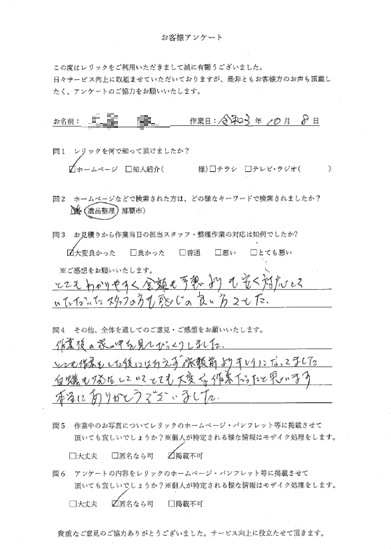 お客様アンケート
この度はレリックをご利用いただきまして誠に有難うございました。
日々サービス向上に取組ませていただいておりますが、是非ともお客様方のお声も頂戴し
たく、アンケートのご協力をお願いいたします。
お名前: 作業日: 令和3 年 10 月 8 日
問1 レリックを何で知って頂けましたか?
☑ホームページ □知人紹介( 様) □チラシ □テレビ・ラジオ( )
問2 ホームページなどで検索された方は、どの様なキーワードで検索されましたか?
(遺品整理 那覇市)
問3 お見積りから作業当日の担当スタッフ・整理作業の対応は如何でしたか?
☑大変良かった □良かった □普通 □悪い □とても悪い
※ご感想をお願いいたします。
とてもわかりやすく金額も予想よりも安く対応して
いただいたスタッフの方も感じの良い方でした。
問4 その他、全体を通してのご意見・ご感想をお願いします。
作業後の家の中を見てびっくりしました。
とても作業をした後には見えず依頼前よりキレイになってました
台風も発生していてとても大変な作業だったと思います
本当にありがとうございました。
問5 作業中のお写真についてレリックのホームページ・パンフレット等に掲載させて
頂いても宜しいでしょうか?※個人が特定される様な情報はモザイク処理をします。
□大丈夫 □匿名なら可 ☑掲載不可
問6 アンケートの内容をレリックのホームページ・パンフレット等に掲載させて
頂いても宜しいでしょうか?※個人が特定される様な情報はモザイク処理をします。
□大丈夫 ☑匿名なら可 □掲載不可
貴重なご意見のご協力ありがとうございました。サービス向上に役立たせて頂きます。